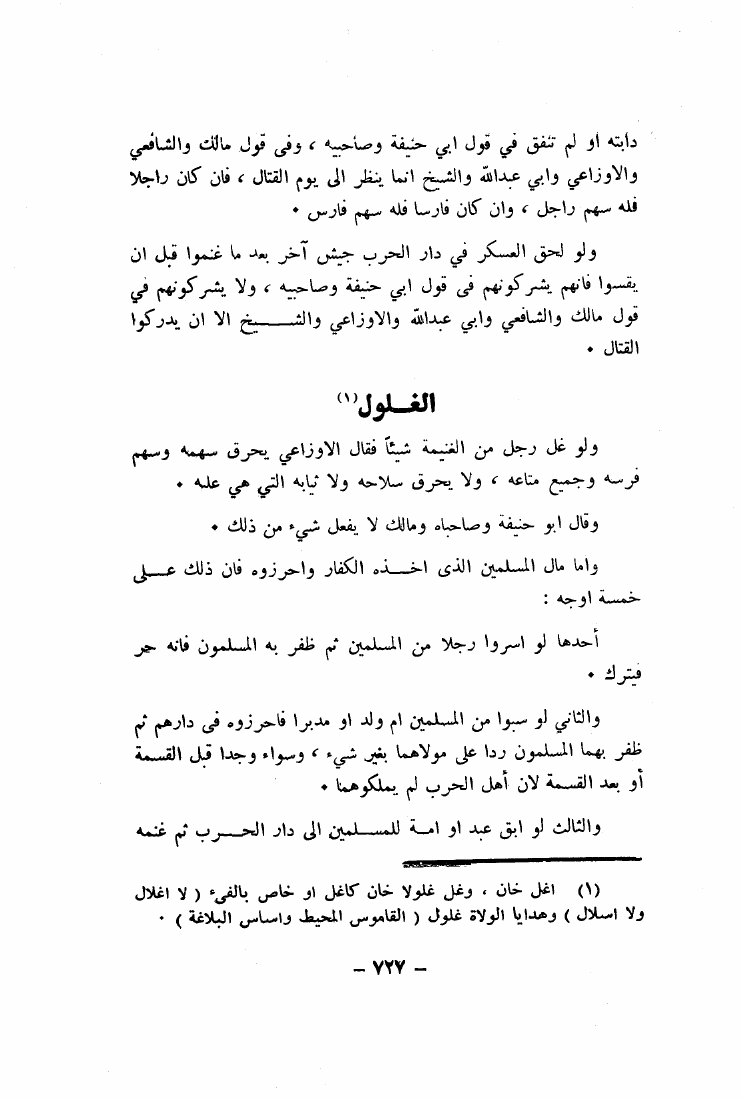 دابته او لم تنفق في قول ابي حنيفة وصاحبيه ، وفى قول مالك والشافعي
والاوزاعي وابي عبدالله والشيخ انما ينظر الى يوم القتال ، فان كان راجلا
فله سهم راجل ، وان كان فارسا فله سهم فارس ٠
ولو لحق العسكر في دار الحرب جيش آخر بعد ما غنموا قبل ان
يقسوا فانهم يشركونهم فى قول ابي حنيفة وصاحبيه ، ولا يشركونهم في
قول مالك والشافعي وابي عبدالله والاوزاعي والشـــــيخ الا ان يدركوا
القتال ٠
الغـــلول(١)
ولو غل رجل من الغنيمة شيئاً فقال الاوزاعي يحرق سهمه وسهم
فرسه وجميع متاعه ، ولا يحرق سلاحه ولا ثيابه التي هي عليه ٠
وقال ابو حنيفة وصاحباه ومالك لا يفعل شيء من ذلك ٠
واما مال المسلمين الذى اخـــذه الكفار واحرزوه فان ذلك عـــلى
خمسة اوجه :
أحدها لو اسروا رجلا من المسلمين ثم ظفر به المسلمون فانه حر
فيترك ٠
والثاني لو سبوا من المسلمين ام ولد او مدبرا فاحرزوه فى دارهم ثم
ظفر بهما المسلمون ردا على مولاهما بغير شيء ، وسواء وجدا قبل القسمة
أو بعد القسمة لان أهل الحرب لم يملكوهما ٠
والثالث لو ابق عبد او امـة للمســـلمين الى دار الحـــرب ثم غنمه
(١) اغل خان ، وغل غلولا خان كاغل او خاص بالفيء ( لا اغلال
ولا اسلال ) وهدايا الولاة غلول ( القاموس المحيط واساس البلاغة ) ٠
– ٧٢٧ –